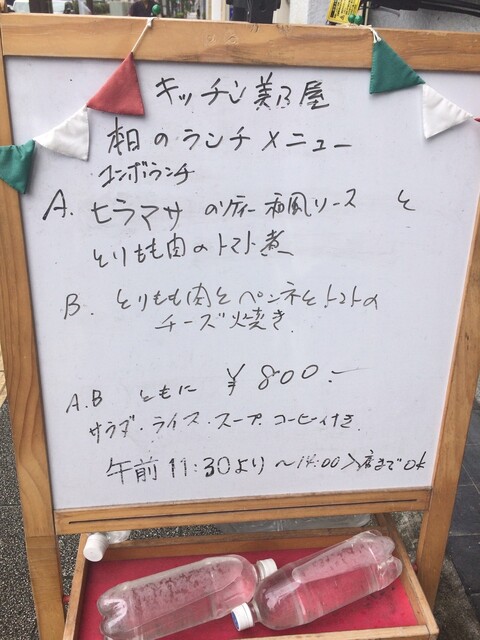 キッチン美乃屋
本日のランチメニュー
コンボランチ
A. ヒラマサのソティー和風ソースと
とりもも肉のトマト煮
B. とりもも肉とペンネとトマトの
チーズ焼き
A.B ともに ¥800.-
サラダ・ライス・スープ コーヒィ付き
午前11:30より〜14:00入店までOk